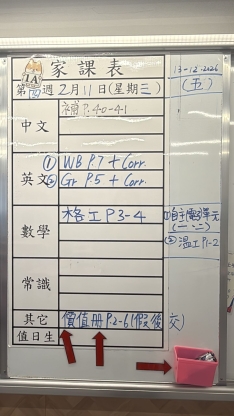 1A
家課表
13-12-2026
第四週 2月11日(星期三)
(五)
中文
補P.40-41
英文
① WB P.7 + Corr.
② Gr P.5 + Corr.
數學
格工P3-4
(一、二)
② 溫工P1-2
常識
其它
價值冊P.2-6(假後交)
值日生